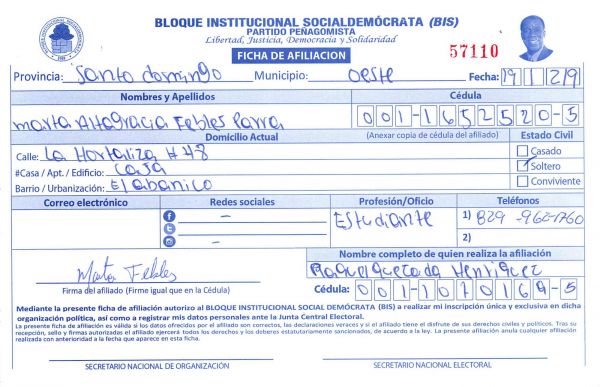 BLOQUE INSTITUCIONAL SOCIALDEMÓCRATA (BIS)
PARTIDO PEÑAGOMISTA
Libertad, Justicia, Democracia y Solidaridad
FICHA DE AFILIACION
57110
Provincia: Santo domingo Municipio: oeste Fecha: 19 1 219
Nombres y Apellidos Cédula
Marta Altagracia Febles Parra 001-1652520-5
Domicilio Actual (Anexar copia de cédula del afiliado) Estado Civil
Calle: La Hortaliza #48 Casado
#Casa / Apt. / Edificio: Casa Soltero
Barrio / Urbanización: El abanico Conviviente
Correo electrónico Redes sociales Profesión/Oficio Teléfonos
– Estudiante 1) 829-962-1760
– 2)
Marta Febles Nombre completo de quien realiza la afiliación
Raquel Quezada Henriquez
Firma del afiliado (Firme igual que en la Cédula) Cédula: 001-1070169-5
Mediante la presente ficha de afiliación autorizo al BLOQUE INSTITUCIONAL SOCIAL DEMÓCRATA (BIS) a realizar mi inscripción única y exclusiva en dicha
organización política, así como a registrar mis datos personales ante la Junta Central Electoral.
La presente ficha de afiliación es válida si los datos ofrecidos por el afiliado son correctos, las declaraciones veraces y si el afiliado tiene el disfrute de sus derechos civiles y políticos. Tras su
recepción, sello y firmas autorizadas el afiliado ejercerá todos los derechos y los deberes estatutariamente sancionados, de acuerdo a la ley. La presente afiliación anula cualquier afiliación
realizada con anterioridad a la fecha que aparece en esta ficha.
SECRETARIO NACIONAL DE ORGANIZACIÓN SECRETARIO NACIONAL ELECTORAL